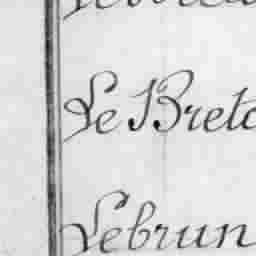 Le Breto
Lebrun